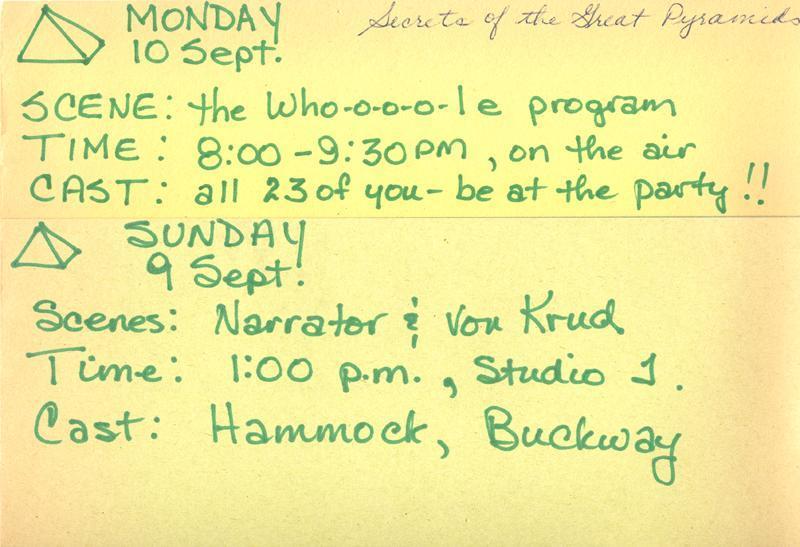 Secrets of the Great Pyramids
MONDAY
10 Sept.
SCENE: the Who-o-o-o-le program
TIME: 8:00-9:30PM, on the air
CAST: all 23 of you - be at the party!!
SUNDAY
9 Sept.
Scenes: Narrator & Von Krud
Time: 1:00 p.m., Studio 1.
Cast: Hammock, Buckway